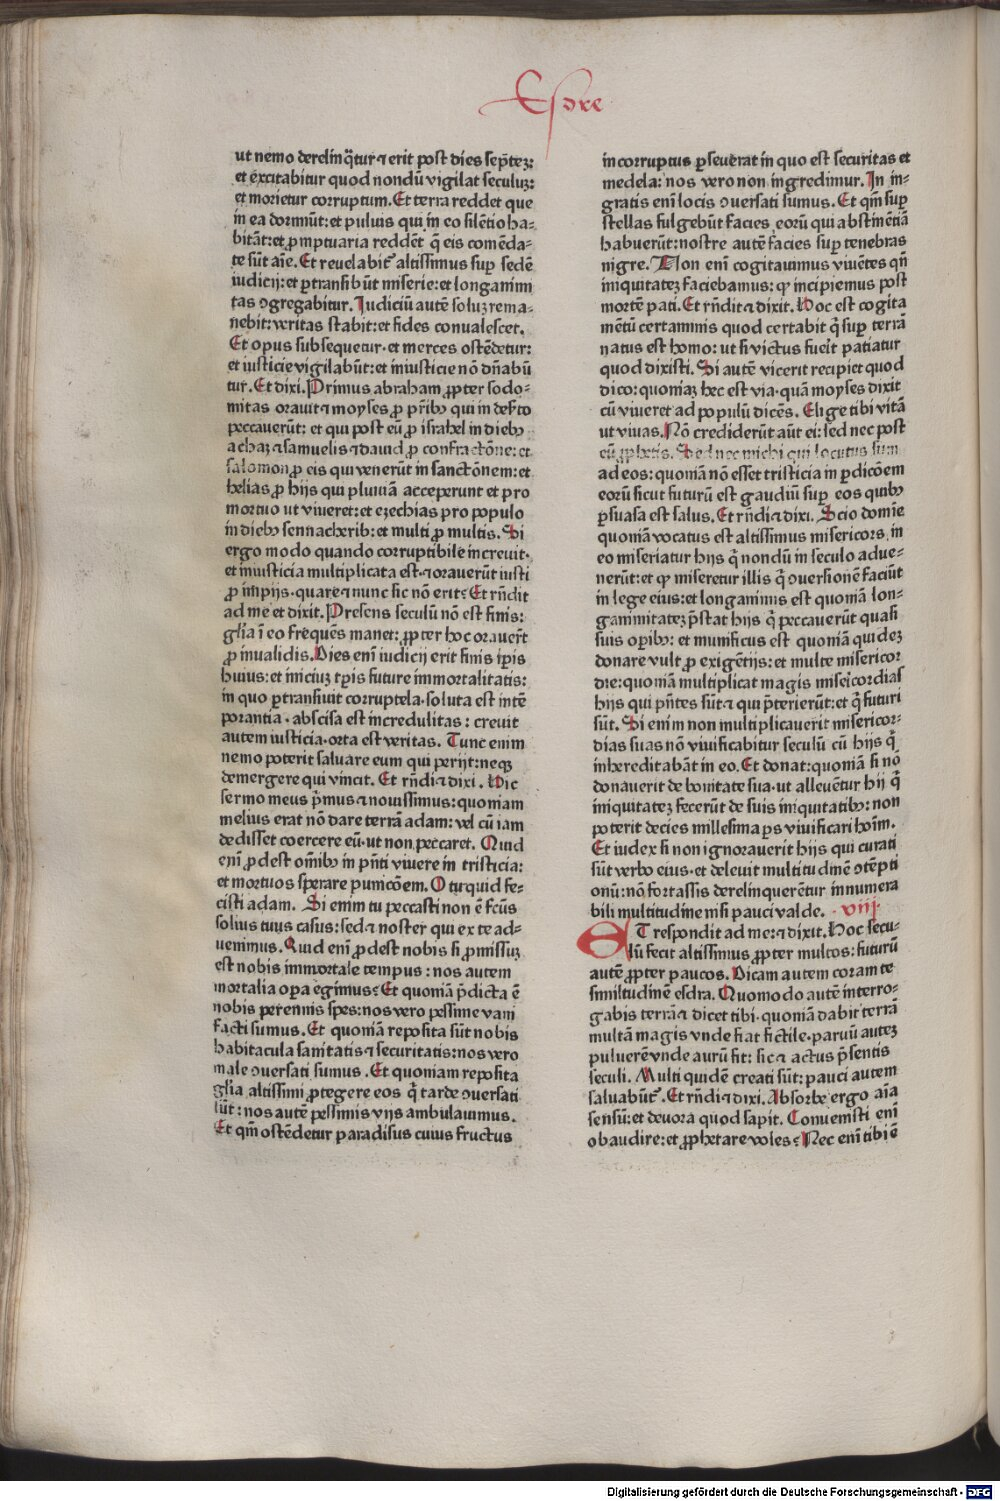 Esdre
ut nemo derelinq̄tur ⁊ erit post dies septeꝫ:
et excitabitur quod nondū vigilat seculuꝫ:
et morietur corruptum. Et terra reddet que
in ea dormiūt: et puluis qui in eo silētio ha-
bitāt: et ꝓmptuaria reddēt q̄ eis comēda-
te sūt aīe. Et reuelabit᷑ altissimus suꝑ sedē
iudicij: et ꝑtransibūt miserie: et longanimi
tas ꝯgregabitur. Iudiciū autē soluꝫ rema-
nebit: veritas stabit: et fides conualescet.
Et opus subsequetur· et merces ostēdetur:
et iusticie vigilabūt: et iniusticie nō dn̄abū
tur. Et dixi. Primus abraham ꝓpter sodo-
mitas orauit ⁊ moyses ꝓ pr̄ibꝫ qui in deẜto
peccauerūt: et qui post eū ꝓ israhel in diebꝫ
achaz ⁊ samuelis ⁊ dauid ꝓ confractōne: et
salomon ꝓ eis qui venerūt in sanctōnem: et
helias ꝓ hijs qui pluuiā acceperunt et pro
mortuo ut viueret: et ezechias pro populo
in diebꝫ sennacherib: et multi ꝓ multis. Si
ergo modo quando corruptibile increuit·
et iniusticia multiplicata est· ⁊ orauerūt iusti
ꝓ impijs· quare ⁊ nunc sic nō erit? Et rn̄dit
ad me et dixit. Presens seculū nō est finis:
glīa ī eo frequēs manet: ꝓpter hoc orauer̄t
ꝓ inualidis. Dies enī iudicij erit finis tꝑis
huius: et iniciuꝫ tꝑis future immortalitatis:
in quo ꝑtransiuit corruptela· soluta est intē
porantia· abscisa est incredulitas: creuit
autem iusticia· orta est veritas. Tunc enim
nemo poterit saluare eum qui perijt: neqꝫ
demergere qui vincit. Et rn̄di ⁊ dixi. Hic
sermo meus pͥmus ⁊ nouissimus: quoniam
melius erat nō dare terrā adam: vel cū iam
dedisset coercere eū· ut non peccaret. Quid
enī ꝓdest om̄ibꝫ in pn̄ti viuere in tristicia:
et mortuos sperare punicōem. O tu quid fe-
cisti adam. Si enim tu peccasti non ē fc̄us
solius tuus casus: sed ⁊ noster qui ex te ad-
uenimus. Quid enī ꝓdest nobis si ꝓmissuꝫ
est nobis immortale tempus: nos autem
mortalia oꝑa egimus? Et quoniā p̄dicta ē
nobis perennis spes: nos vero pessime vani
facti sumus. Et quoniā reposita sūt nobis
habitacula sanitatis ⁊ securitatis: nos vero
male ꝯuersati sumus. Et quoniam reposita
glīa altissimi ꝓtegere eos q̄ tarde ꝯuersati
sūt: nos autē pessimis vijs ambulauimus.
Et qm̄ ostēdetur paradisus cuius fructus
incorruptus ꝑseuerat in quo est securitas et
medela: nos vero non ingredimur. In in-
gratis enī locis ꝯuersati sumus. Et qm̄ suꝑ
stellas fulgebūt facies eorū qui abstinētiā
habuerūt: nostre autē facies suꝑ tenebras
nigre. Non enī cogitauimus viuētes qn̄
iniquitateꝫ faciebamus: ꝙ incipiemus post
mortē pati. Et rn̄dit ⁊ dixit. Hoc est cogita
mētū certaminis quod certabit q̄ suꝑ terrā
natus est homo: ut si victus fuerit patiatur
quod dixisti. Si autē vicerit recipiet quod
dico: quoniaꝫ hec est via· quā moyses dixit
cū viueret ad populū dicēs. Elige tibi vitā
ut viuas. Nō crediderūt aūt ei: sed nec post
eū ꝓphetis. Sed nec michi qui locutus sum
ad eos: quoniā nō esset tristicia in ꝑdicōem
eorū sicut futurū est gaudiū suꝑ eos quibꝫ
ꝑsuasa est salus. Et rn̄di ⁊ dixi. Scio domīe
quoniā vocatus est altissimus misericors, in
eo miseriatur hijs q̄ nondū in seculo adue-
nerūt: et ꝙ miseretur illis q̄ ꝯuersionē faciūt
in lege eius: et longanimis est quoniā lon-
ganimitateꝫ p̄stat hijs q̄ peccauerūt quasi
suis oꝑibꝫ: et munificus est quoniā quideꝫ
donare vult ꝓ exigētijs: et multe misericor
die: quoniā multiplicat magis misericordias
hijs qui pn̄tes sūt ⁊ qui p̄terierūt: et q̄ futuri
sūt. Si enim non multiplicauerit misericor-
dias suas nō viuificabitur seculū cū hijs q̄
inhereditabāt in eo. Et donat: quoniā si nō
donauerit de bonitate sua· ut alleuētur hij q̄
iniquitateꝫ fecerūt de suis iniquitatibꝫ: non
poterit decies millesima ꝑs viuificari hoīm.
Et iudex si non ignorauerit hijs qui curati
sūt verbo eius· et deleuit multitudinē ꝯtēpti
onū: nō fortassis derelinquerētur innumera
bili multitudine nisi pauci valde. ·viij·
ET respondit ad me: ⁊ dixit. Hoc secu-
lū fecit altissimus ꝓpter multos: futurū
autē ꝓpter paucos. Dicam autem coram te
similtudinē esdra. Quomodo autē interro-
gabis terrā ⁊ dicet tibi· quoniā dabit terrā
multā magis vnde fiat fictile· paruū auteꝫ
puluerē vnde aurū fit: sic ⁊ actus p̄sentis
seculi. Multi quidē creati sūt: pauci autem
saluabūt᷑. Et rn̄di ⁊ dixi. Absorbe ergo aīa
sensū: et deuora quod sapit. Conuenisti enī
obaudire: et ꝓphetare voles? Nec enī tibi ē
Digitalisierung gefördert durch die Deutsche Forschungsgemeinschaft - DFG